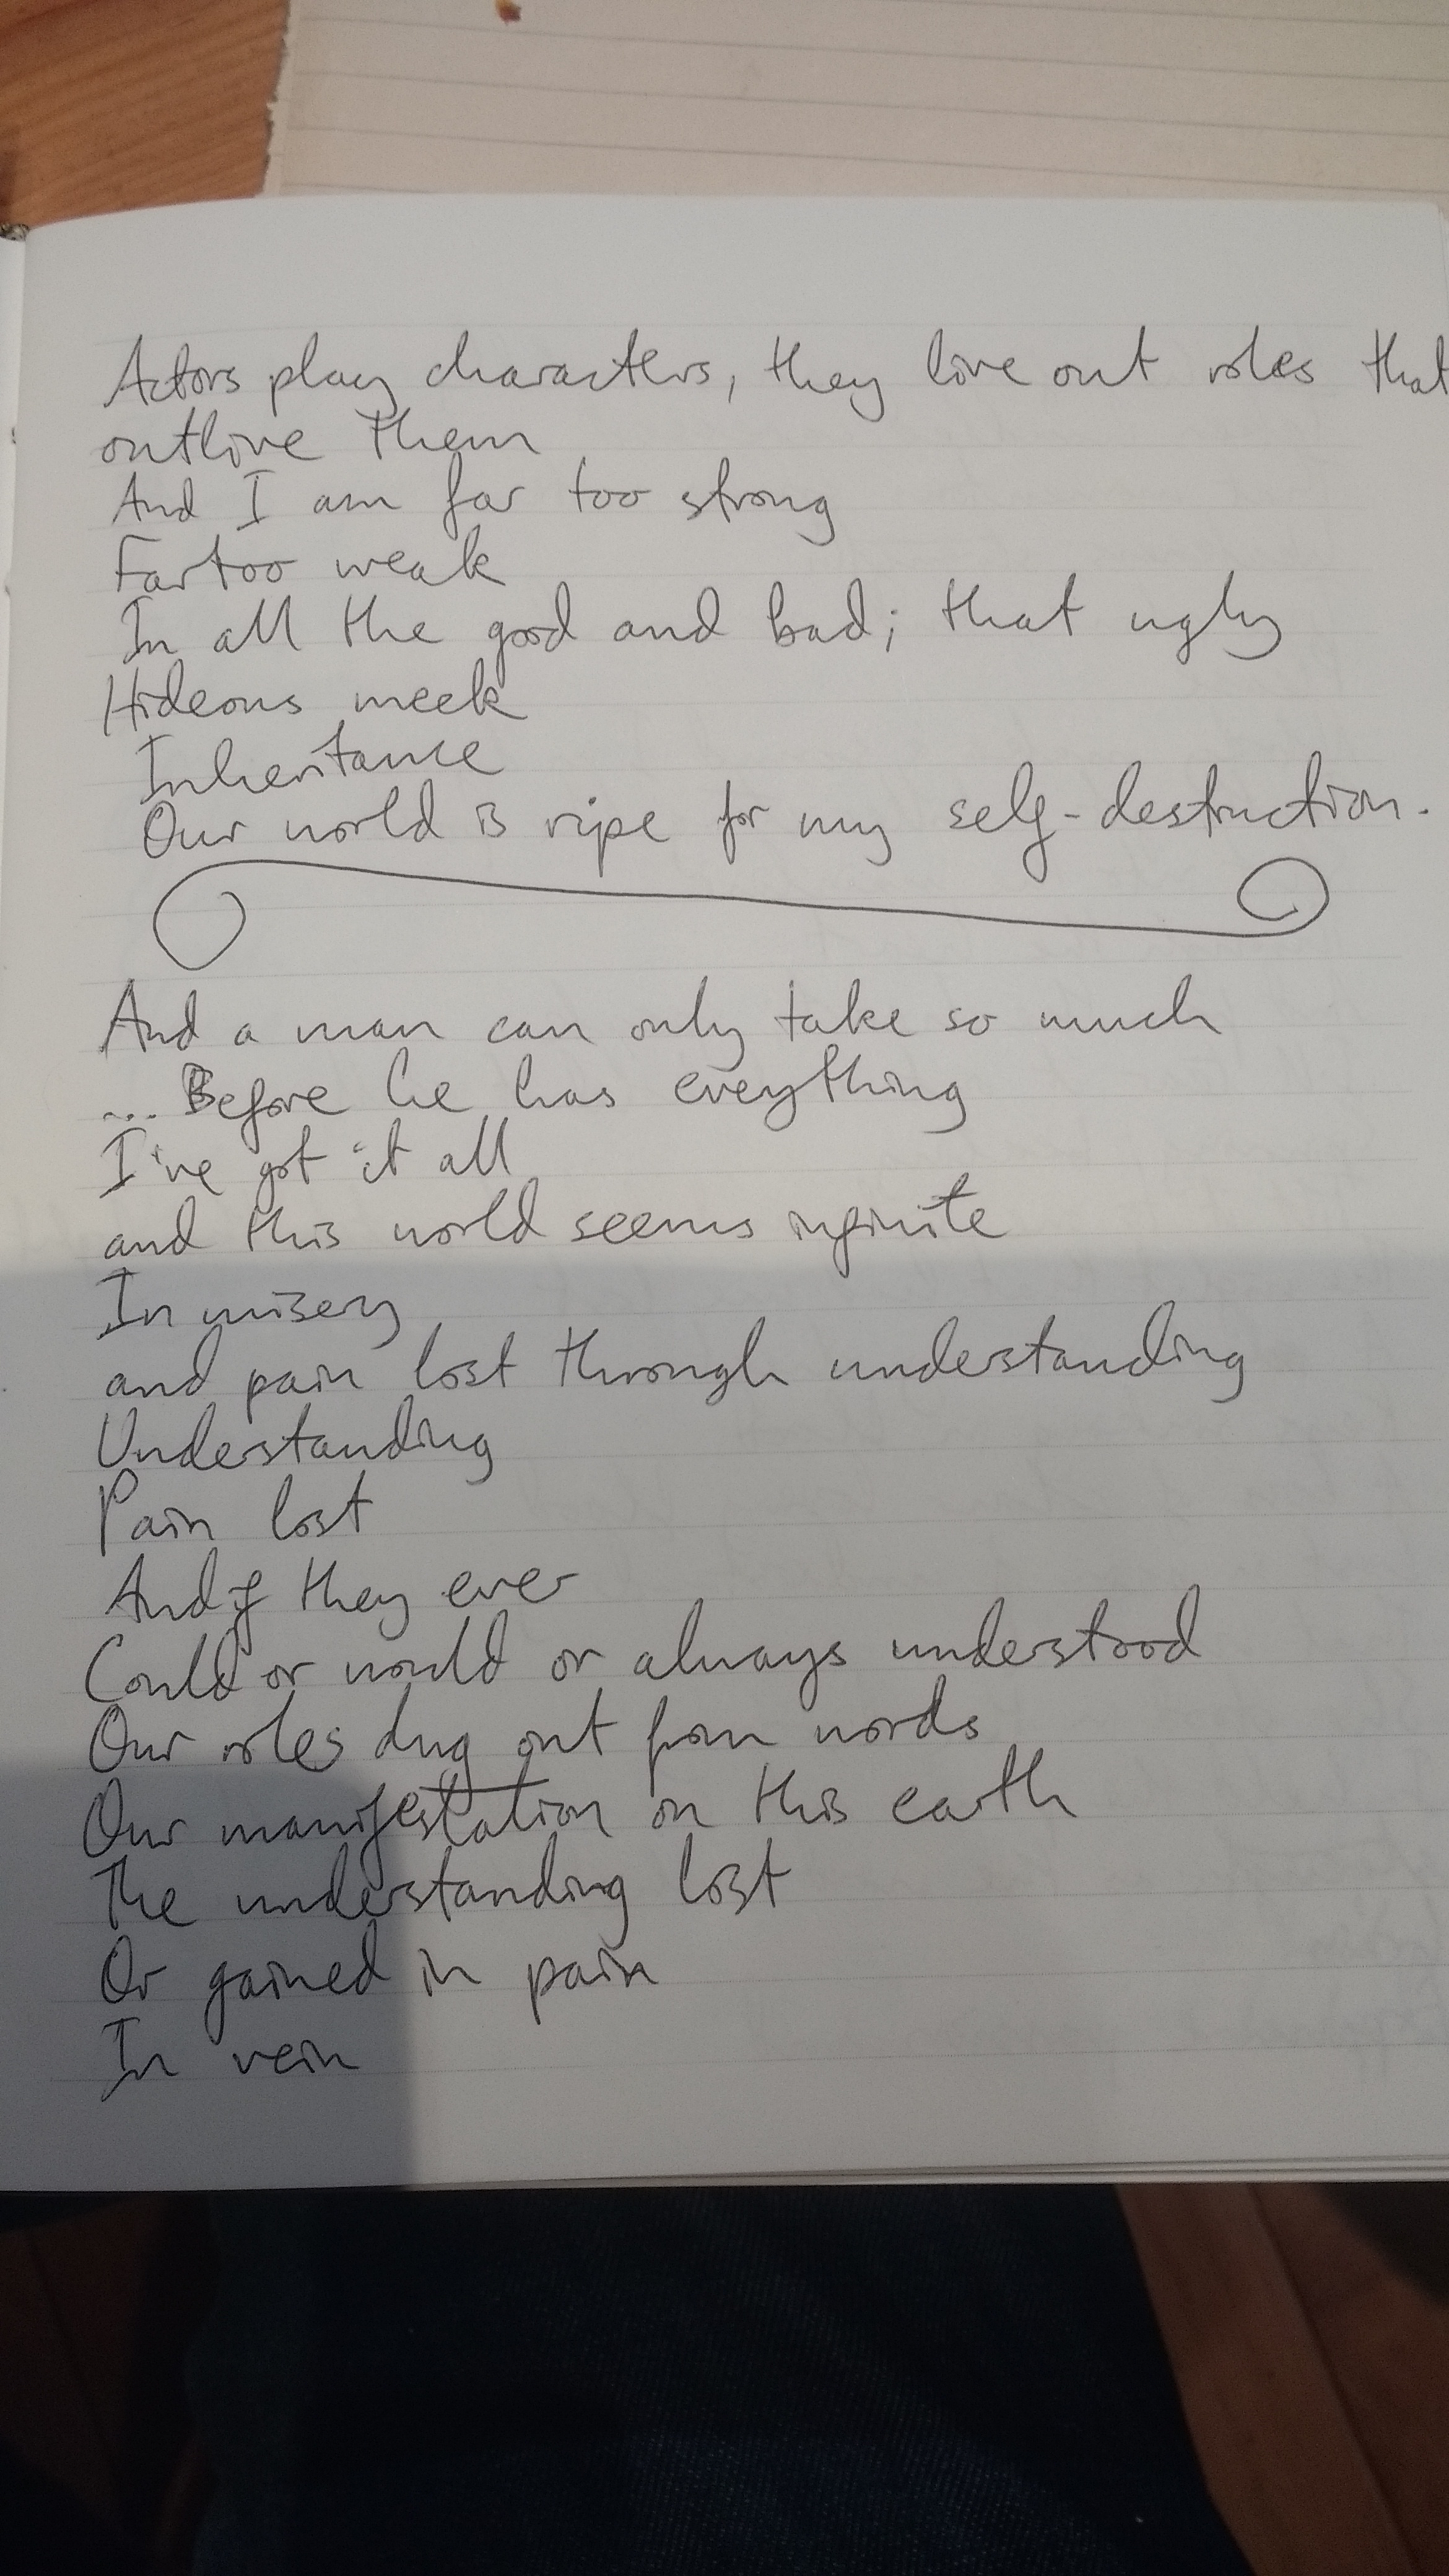 Actors play characters, they live out roles that
outlive them
And I am far too strong
Far too weak
In all the good and bad; that ugly
Hideous meek
Inheritance
Our world is ripe for my self-destruction.
And a man can only take so much
... Before he has everything
I've got it all
and this world seems infinite
In misery
and pain lost through understanding
Understanding
Pain lost
And if they ever
Could or would or always understood
Our roles dug out from words
Our manifestation on this earth
The understanding lost
Or gained in pain
In vein